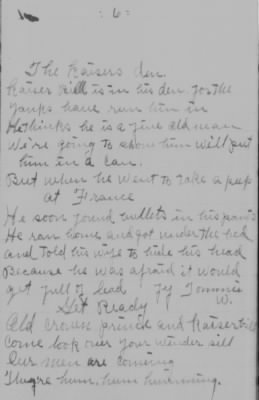 : 6 :
The Kaisers den.
Kaiser Bill is in his den, for the
Yanks have run him in
He thinks he is a fine old man
We're going to show him will put
him in a can.
But when he went to take a peep
at France
He soon found bullets in his pants
He ran home and got under the bed
and told his wife to hide his head
Because he was afraid it would
get full of lead by Tommie
W.
Get Ready
Old crown prince and Kaiser bill
Come look over your winder sill
Our men are comeing
They're hum, hum humming.